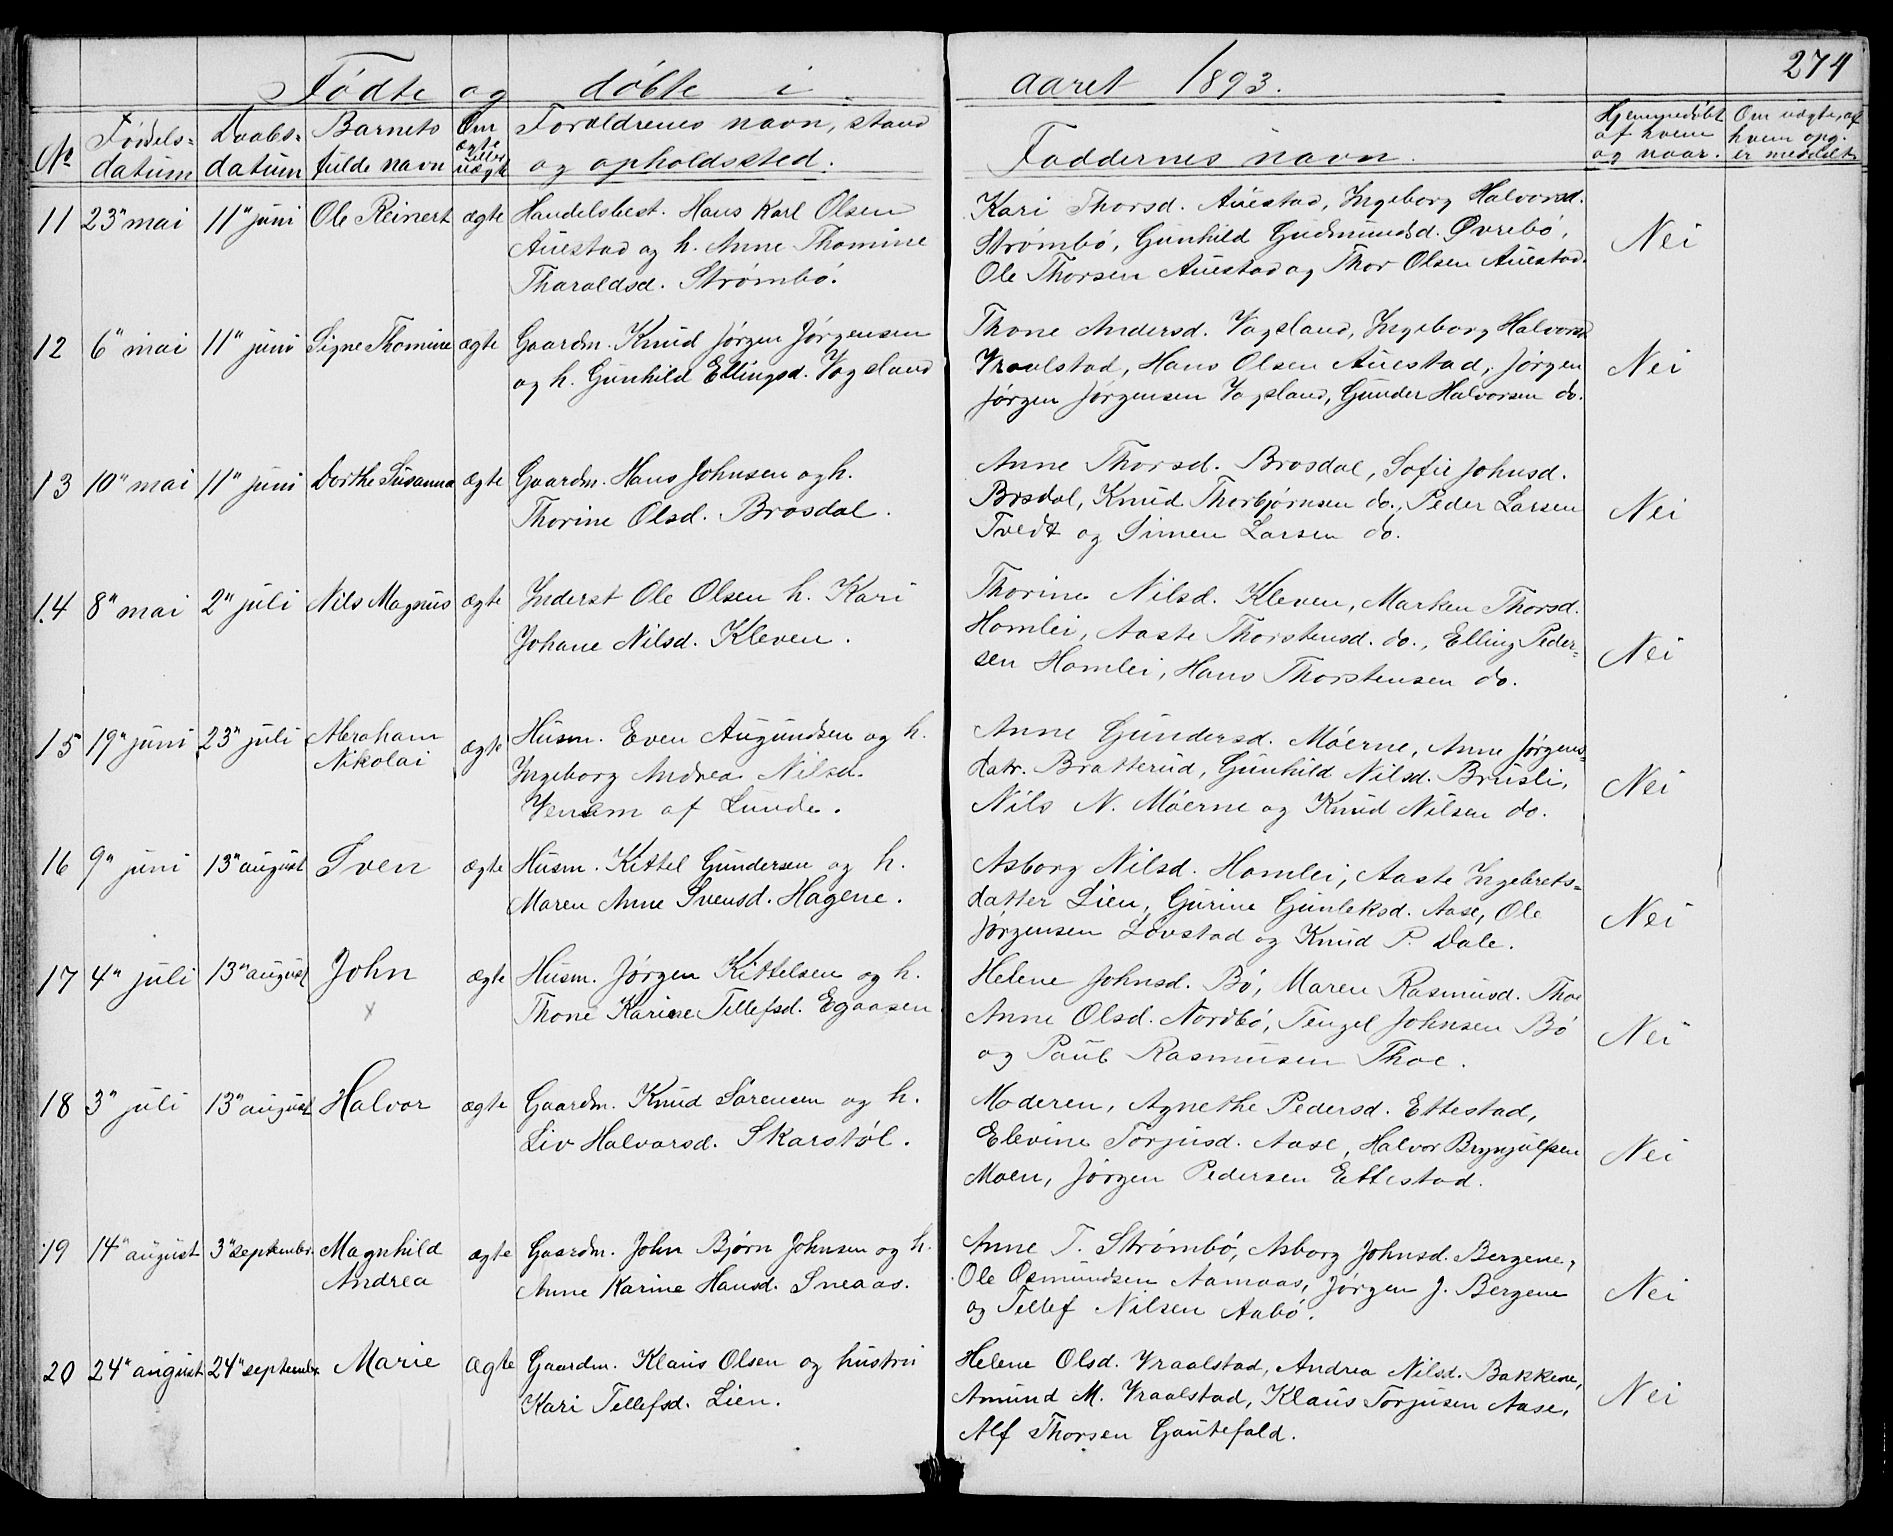 274
Fødte og døbte i aaret 1893.
No Fødsels= datum Daabs= datum Barnets fulde navn Om ægte eller uægte Forældrenes navn, stand og opholdssted. Faddernes navn. Hjemmedøbt af hvem og naar. Om uægte, af hvem opg. er meddelt
11 23" mai 11" juni Ole Reinert ægte Handelsbest. Hans Karl Olsen
Auestad og h. Anne Thomine
Tharaldsd. Strømbø.
Kari Thorsd. Auestad, Ingeborg Halvorsd.
Strømbø, Gunhild Gudmundsd. Øvrebø,
Ole Thorsen Auestad og Thor Olsen Auestad.
Nei
12 6" mai 11" juni Signe Thomine ægte Gaardm. Knud Jørgen Jørgensen
og h. Gunhild Ellingsd. Vagsland
Thone Andersd. Vagsland, Ingeborg Halvorsd
Vraalstad, Hans Olsen Auestad, Jørgen
Jørgen Jørgensen Vagsland, Gunder Halvorsen do.
Nei
13 10" mai 11" juni Dorthe Susanna ægte Gaardm. Hans Johnsen og h.
Thorine Olsd. Brosdal.
Anne Thorsd. Brosdal, Sofie Johnsd.
Brosdal, Knud Thorbjørnsen do., Peder Larsen
Tvedt og Simen Larsen do.
Nei
14 8" mai 2" juli Nils Magnus ægte Inderst Ole Olsen h. Kari
Johane Nilsd. Kleven.
Thorine Nilsd. Kleven, Marken Thorsd.
Homlei, Aaste Thorstensd. do., Elling Peder=
sen Homlei, Hans Thorstensen do.
Nei
15 19" juni 23" juli Abraham
Nikolai ægte Husm. Even Augundsen og h.
Ingeborg Andrea Nilsd.
Venem af Lunde.
Anne Gundersd. Móerne, Anne Jørgens=
datr. Bratterud, Gunhild Nilsd. Brusli,
Nils N. Móerne og Knud Nilsen do.
Nei
16 9" juni 13" august Sven ægte Husm. Kittel Gundersen og h.
Maren Anne Svensd. Hagene.
Asborg Nilsd. Homlei, Aaste Ingebrets=
datter Lien, Gurine Gunleksd. Aase, Ole
Jørgensen Lovstad og Knud P. Dale.
Nei
17 4" juli 13" august John ægte Husm. Jørgen Kittelsen og h.
Thone Karine Tellefsd. Egaasen.
x
Helene Johnsd. Bø, Maren Rasmusd. Thoe
Anne Olsd. Nordbø, Tengel Johnsen Bø
og Paul Rasmusen Thoe.
Nei
18 3" juli 13" august Halvor ægte Gaardm. Knud Sørensen og h.
Liv Halvorsd. Skarstøl.
Moderen, Agnethe Pedersd. Ettestad,
Elevine Torjusd. Aase, Halvor Brynjulfsen
Moen, Jørgen Pedersen Ettestad.
Nei
19 14" august 3" september Magnhild
Andrea ægte Gaardm. John Bjørn Johnsen og h.
Anne Karine Hansd. Sneaas.
Anne T. Strømbø, Asborg Johnsd. Bergene,
Ole Osmundsen Aamaas, Jørgen J. Bergene
og Tellef Nilsen Aabø.
Nei
20 24" august 24" september Marie ægte Gaardm. Klaus Olsen og hustru
Kari Tellefsd. Lien.
Helene Olsd. Vraalstad, Andrea Nilsd. Bakkene,
Amund M. Vraalstad, Klaus Torjusen Aase,
Alf Thorsen Gautefald.
Nei